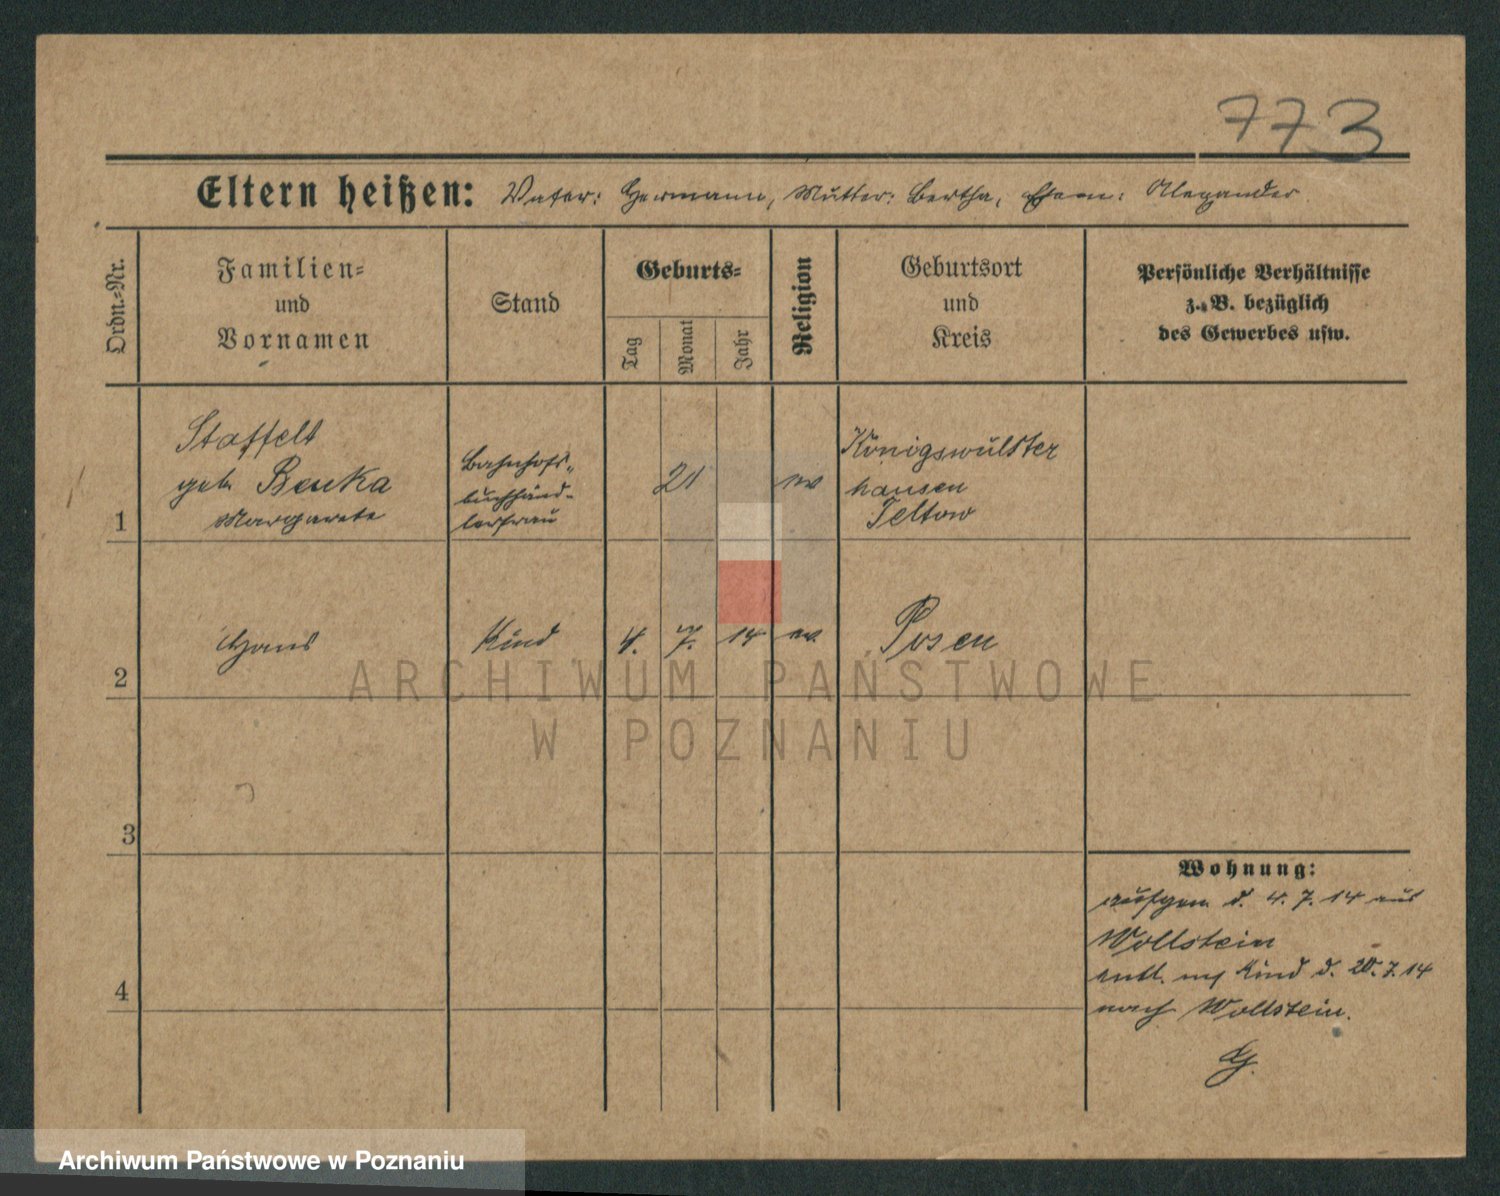 773
Eltern heißen: Vater: Hermann, Mutter: Bertha, Ehem: Alexander
Ordn.-Nr.
Familien-
und
Vornamen
Stand
Geburts-
Tag
Monat
Jahr
Religion
Geburtsort
und
Kreis
Persönliche Verhältnisse
z. B. bezüglich
des Gewerbes usw.
1
Staffelt
geb.
Margarete
Bahnhofs-
buchhänd-
lerfrau
21
ev
Königswüster
hausen
Teltow
2
Hans
Kind
4.
7.
14
ev.
Posen
ARCHIWUM PAŃSTWOWE
W POZNANIU
3
4
Wohnung:
aufgen d. 4. 7. 14 aus
Wollstein
entl. m Kind d. 20. 7. 14
nach Wollstein.
Archiwum Państwowe w Poznaniu